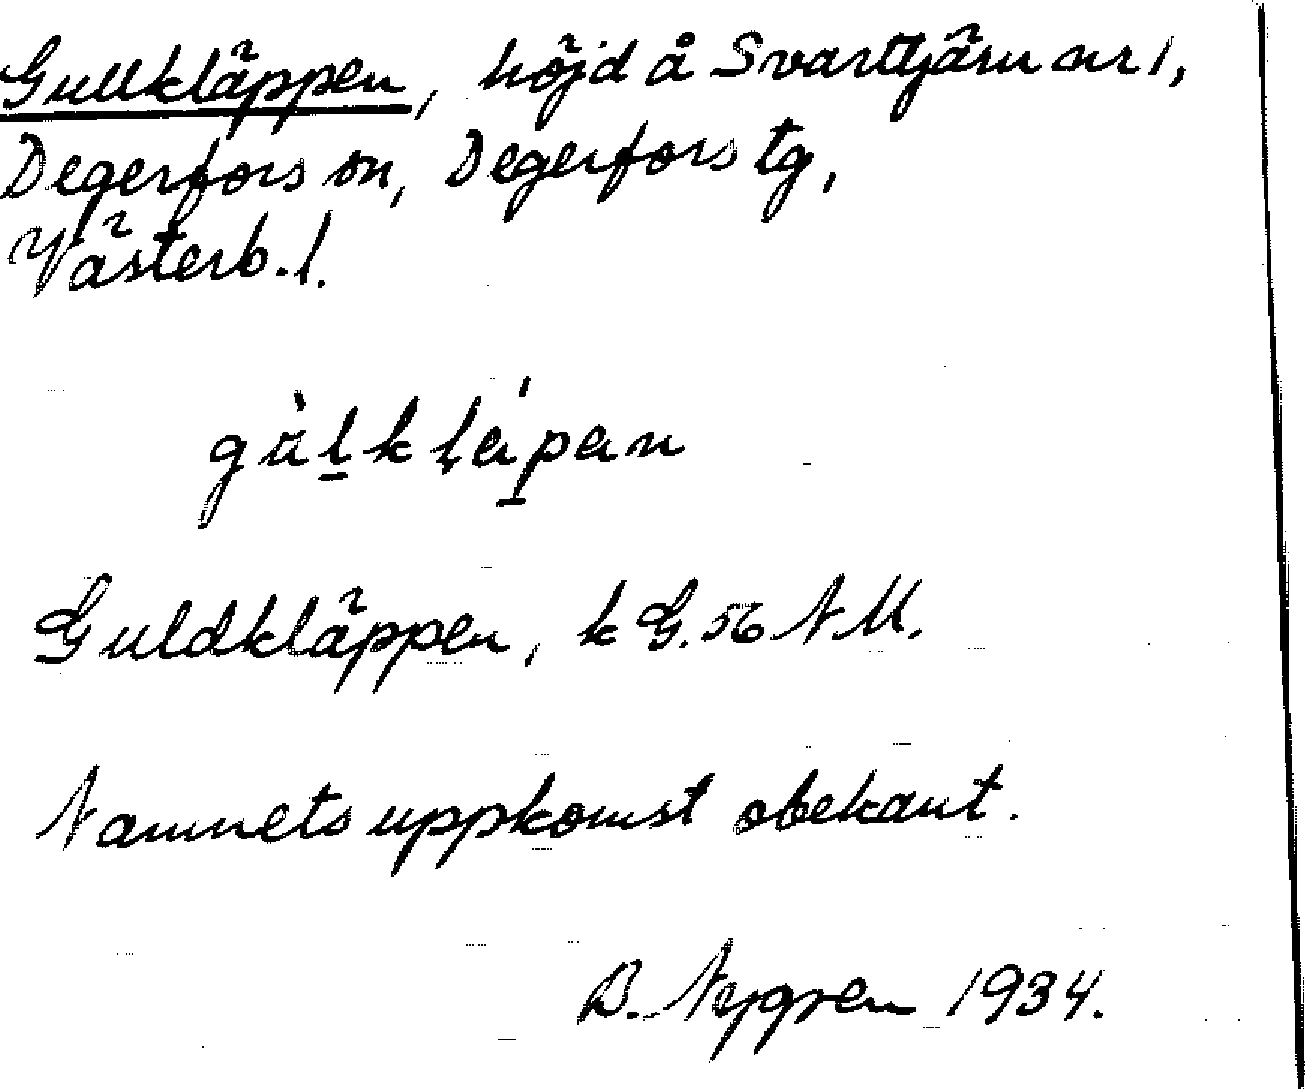 Gullkläppen, höjd å Svarttjärn nr 1,
Degerfors sn, Degerfors tg,
Västerb. l.
Guldkläppen, k G. 56 N M.
Namnets uppkomst obekant.
B. Nygren 1934.